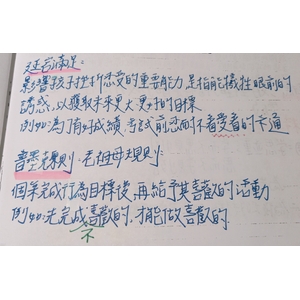 延宕滿足:
影響孩子挫折忍受的重要能力,是指能犧牲眼前的
誘惑,以獲取未來更大更好的目標
例如:為了有好成績,考試前忍耐不看愛看的卡通
普墨克原則:老祖母規則
個案完成行為目標後,再給予其喜歡的活動
例如:先完成不喜歡的,才能做喜歡的